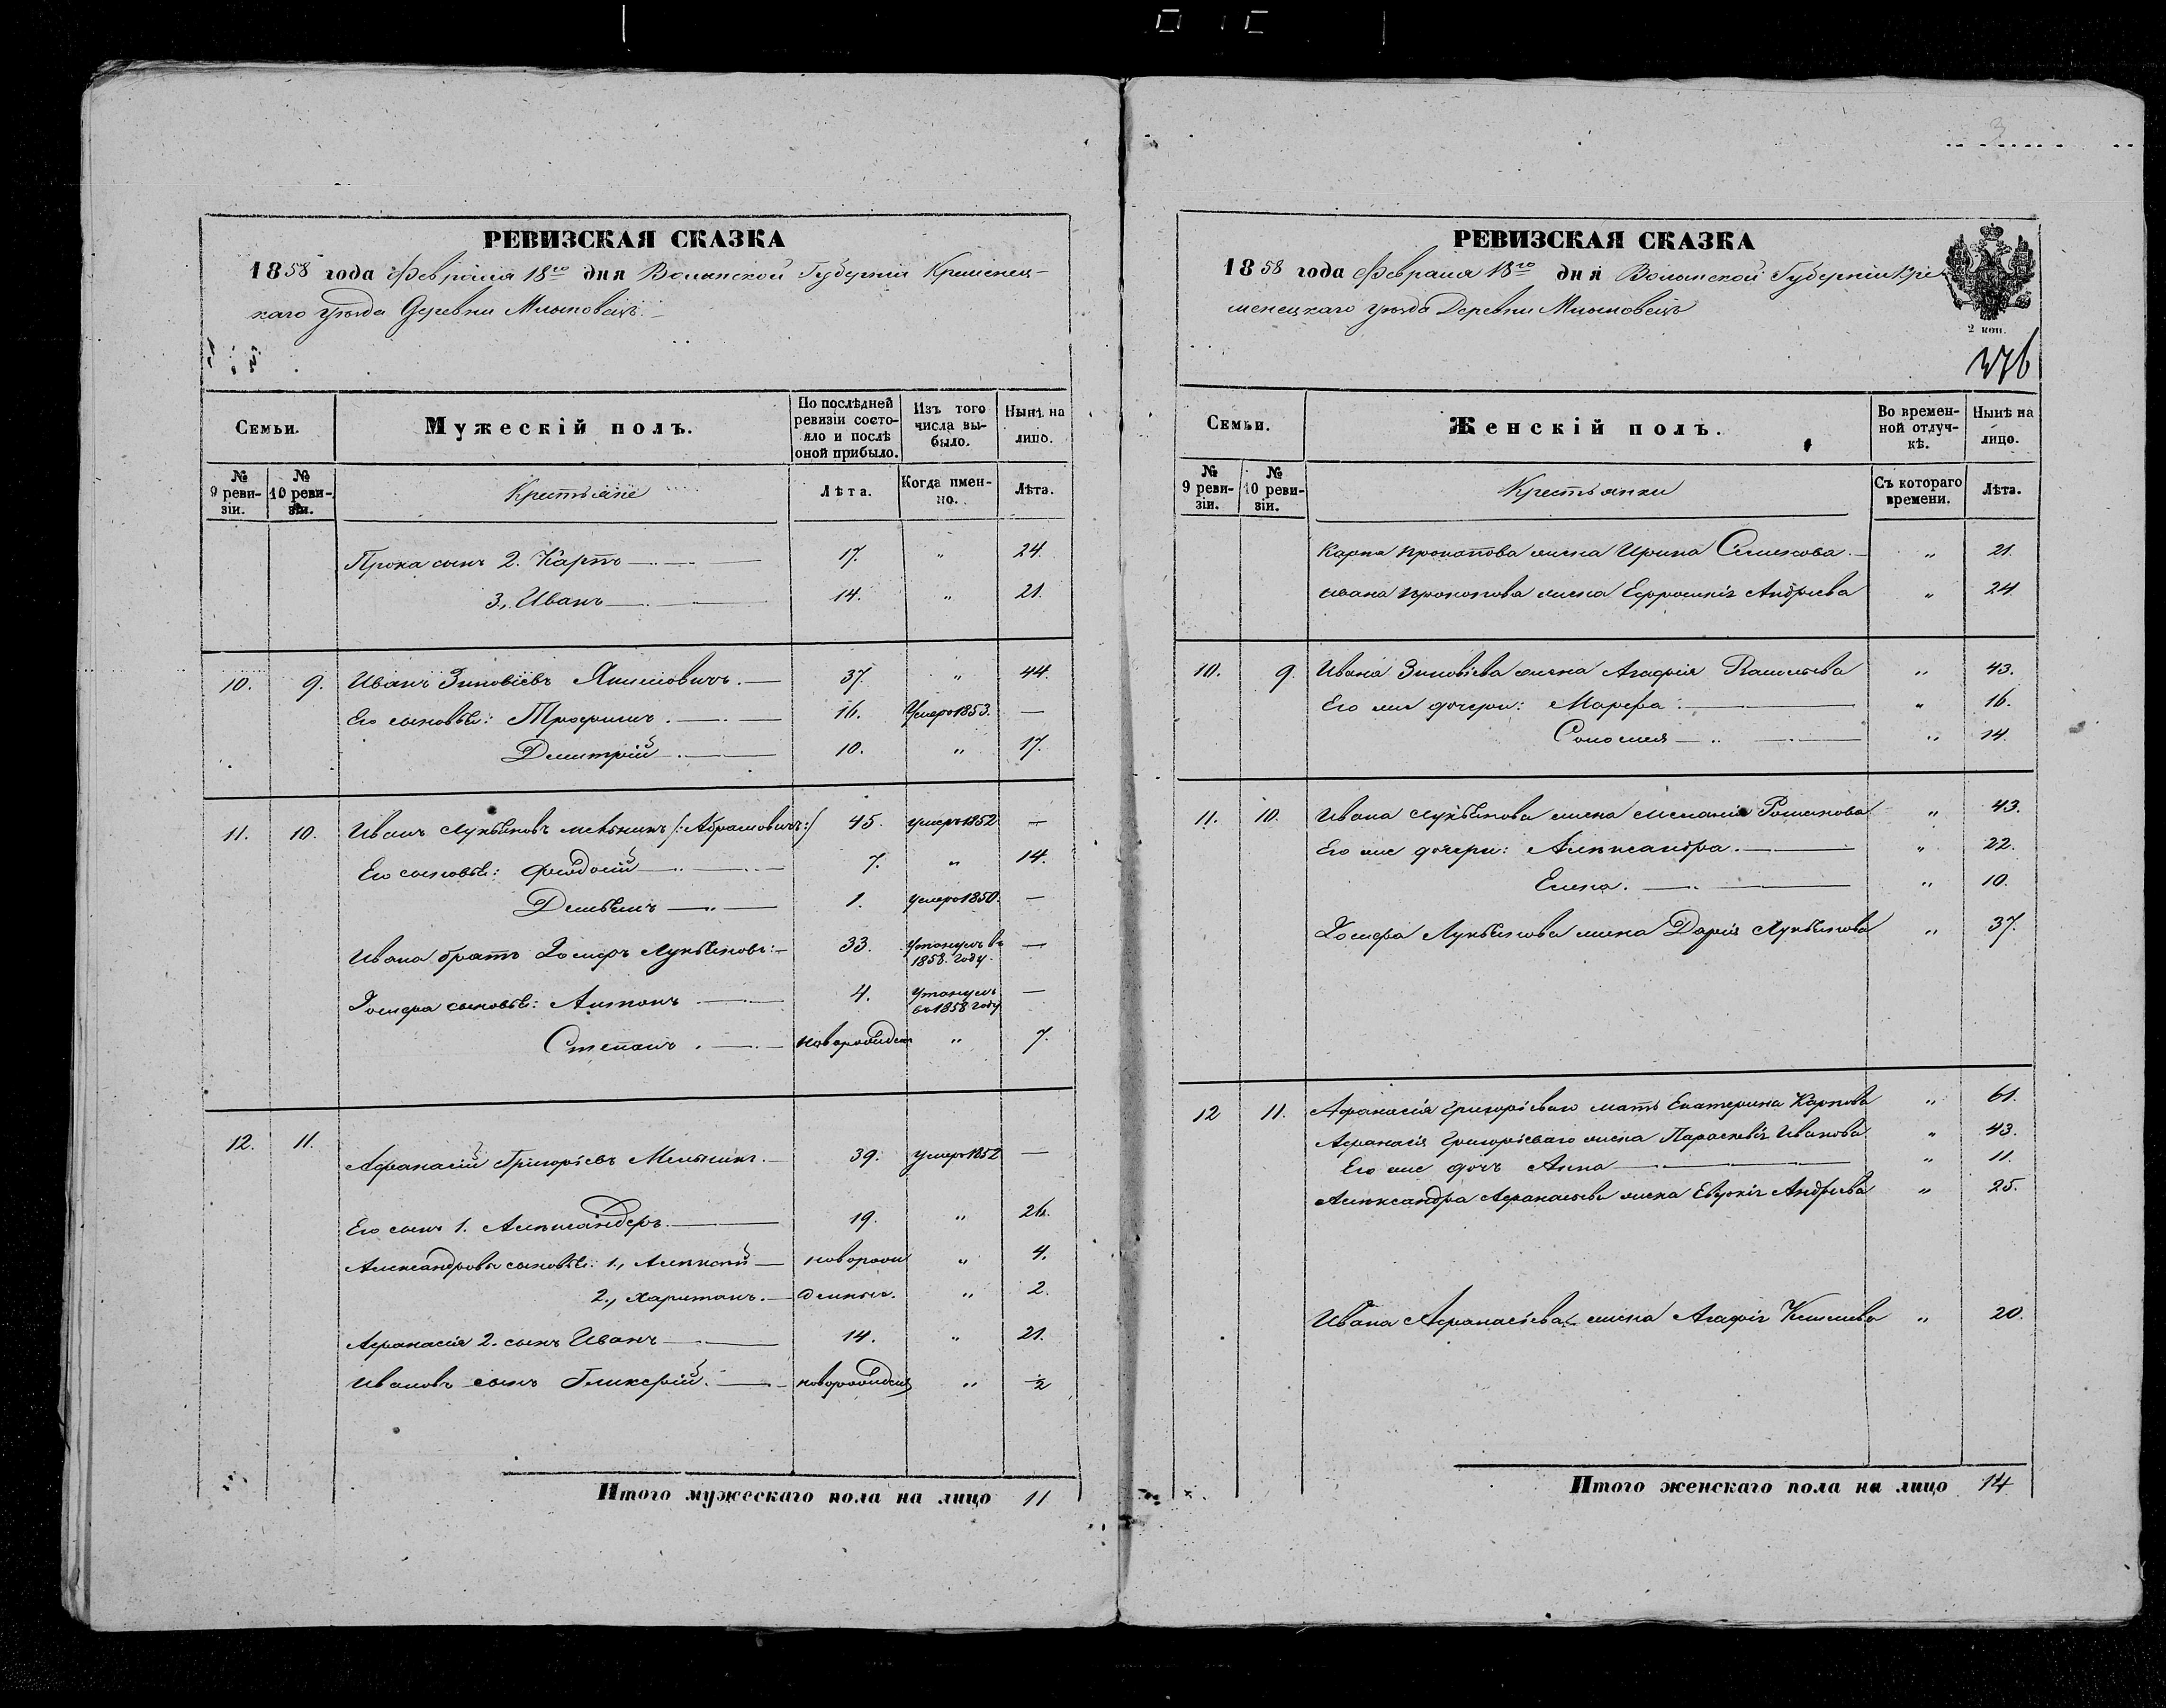 3
РЕВИЗСКАЯ СКАЗКА
1858 года Февраля 18го дня Волынской Губерніи Кременец-
каго уѣзда Деревни
Семьи.
Мужескій полъ.
По послѣдней ревизіи состояло и послѣ оной прибыло.
Изъ того числа выбыло.
Нынѣ на лицо.
№ 9 ревизіи.
№ 10 ревизіи.
Крестьяне
Лѣта.
Когда именно.
Лѣта.
Прока сынъ 2. Карпъ 17. " 24.
3., Иванъ 14. " 21.
10. 9. Иванъ Зиновіевъ Якимовичъ. 37. " 44.
Его сыновья: Трофимъ. 16. Умеръ 1853. —
Дмитрій 10. " 17.
11. 10. Иванъ Лукьяновъ мельникъ /:Абрамовичъ:/ 45. умеръ 1852 —
Его сыновья: Феодосій 7. " 14.
Демьянъ 1. умеръ 1850. —
Ивана братъ Іосифъ Лукьяновъ: 33. утонулъ въ 1858. году. —
Іосифа сыновья: Антонъ 4. утонулъ въ 1858 году —
Степанъ. новорожден " 7.
12. 11. Афанасій Григорьевъ Мельникъ. 39. умеръ 1852 —
Его сынъ 1. Александеръ. 19. " 26.
Александровы сыновья: 1., Алексѣй новорож " 4.
2., Харитонъ. денные. " 2.
Афанасія 2. сынъ Иванъ 14. " 21.
Ивановъ сынъ Гликерій. новорожден " ½
Итого мужескаго пола на лицо 11
РЕВИЗСКАЯ СКАЗКА
1858 года Февраля 18го дня Волынской Губерніи Кре
менецкаго уѣзда Деревни
2 коп.
376
Семьи.
Женскій полъ.
Во временной отлучкѣ.
Нынѣ на лицо.
№ 9 ревизіи.
№ 10 ревизіи.
Крестьянки
Съ котораго времени.
Лѣта.
Карпа Прокопова жена Ирина Семенова. " 21.
Ивана Прокопова жена Ефросинія Андрѣева " 24
10. 9. Ивана Зиновіева жена Агафія " 43.
Его же дочери: Марфа " 16.
Соломея " 14.
11. 10. Ивана Лукьянова жена Меланія Романова " 43.
Его же дочери: Александра. " 22.
Елена. " 10.
Іосифа Лукьянова жена Дарія Лукьянова " 37.
12 11. Афанасія Григорьеваго мать Екатерина Карпова " 61.
Афанасія Григорьеваго жена Параскевія Иванова " 43.
Его же дочь Анна " 11.
Александра Афанасьева жена Андрѣева " 25.
Ивана Афанасіева жена Агафія " 20.
Итого женскаго пола на лицо 14